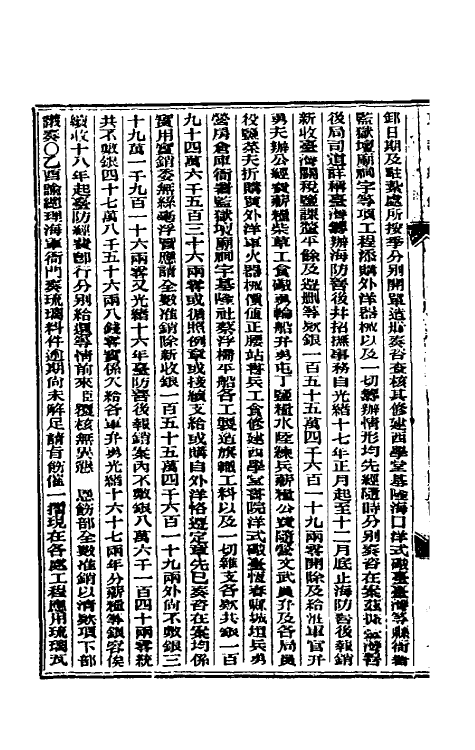 卸日期及駐紮處所按季分別開單造册奏咨查核其修建西學堂基隆海口洋式礮臺臺灣等縣衙署
監獄壇廟祠宇等項工程添購外洋器械以及一切籌辦情形均先經隨時分別奏咨在案茲據
後局司道詳稱臺灣籌辦海防善後并招撫事務自光緒十七年正月起至十二月底止海防善後報銷
新收臺灣關稅鹽課釐平餘及造删等款銀一百五十五萬四千六百一十九兩零開除及給軍官弁
勇夫辦公經費薪糧柴草工食礮勇輪船弁勇屯丁鹽糧水陸練兵薪糧公費隨營文武員弁及各局員
役鹽菜夫折購買外洋軍火器械價值正腰站書兵工食修建西學堂書院洋式礮臺恆春縣城垣兵勇
營房倉庫衙署監獄壇廟祠宇基隆社寮浮橋平船各工製造旗幟工料以及一切雜支各款共銀一百
九十四萬六千五百三十六兩零或循照例章或接續支給或購自外洋恪遵定章先已奏咨在案均係
實用實銷委無絲毫浮冒應請全數准銷除新收銀一百五十五萬四千六百一十九兩外尚不敷銀三
十九萬一千九百一十六兩零又光緒十六年臺防善後報銷案內不敷銀八萬六千一百四十兩零統
共不敷銀四十七萬八千五十六兩八錢零實係欠給各軍弁勇光緒十六十七兩年分薪糧等銀容俟
續收十八年起臺防經費卽行分別給還等情前來臣覆核無異懇 恩飭部全數准銷以清款項下部
議奏〇乙酉諭總理海軍衙門奏琉璃料件逾期尚未解足請旨飭催一摺現在各處工程應用琉璃瓦